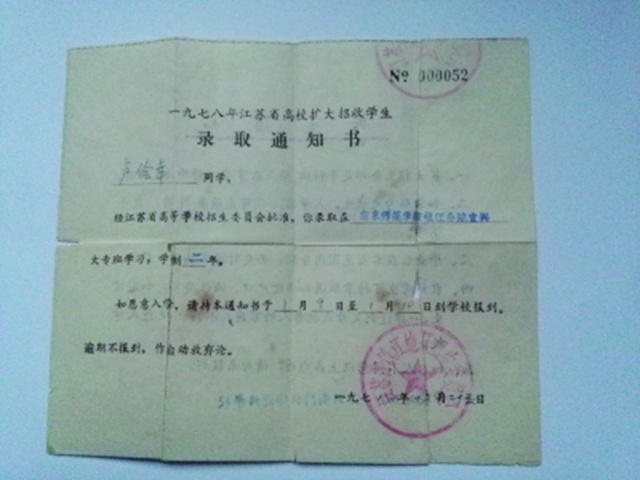 Nº 000052
一九七八年江苏省高校扩大招收学生
录取通知书
同学、
经江苏省高等学校招生委员会批准,你录取在 南京师范学院镇江分院宜兴
大专班学习,学制 二 年。
如愿意入学,请持本通知书于 1 月 9 日至 1 月 10 日到学校报到。
逾期不报到,作自动放弃论。
一九七八年十二月二十五日